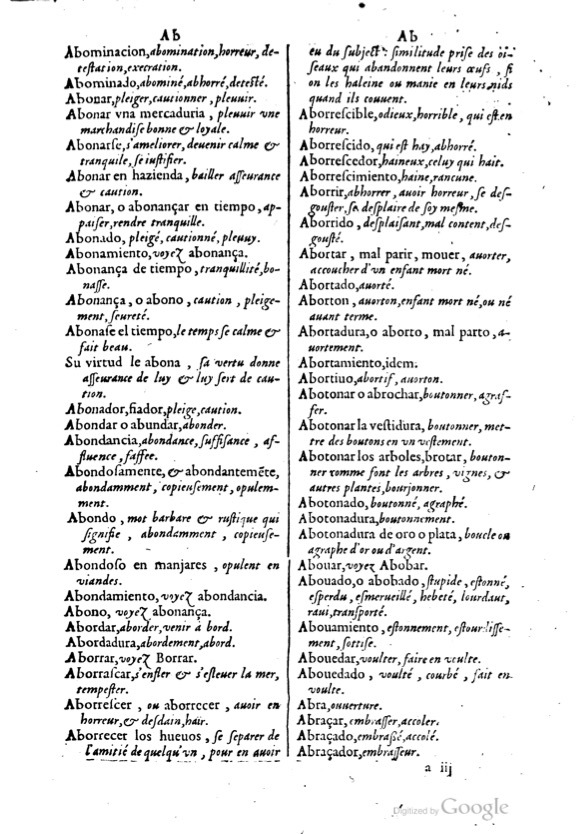 Ab
Abominacion, abomination, horreur, de-
testation, execration.
Abominado, abominé, abhorré, detesté.
Abonar, pleiger, cautionner, pleuuir.
Abonar vna mercaduria, pleuuir vne
marchandise bonne & loyale.
Abonarse, s'ameliorer, deuenir calme &
tranquile, se iustifier.
Abonar en hazienda, bailler asseurance
& caution.
Abonar, o abonançar en tiempo, ap-
paiser, rendre tranquille.
Abonado, pleigé, cautionné, pleuuy.
Abonamiento, voyez abonança.
Abonança de tiempo, tranquillité, bo-
nasse.
Abonança, o abono, caution, pleige-
ment, seureté.
Abonase el tiempo, le temps se calme &
fait beau.
Su virtud le abona, sa vertu donne
asseurance de luy & luy sert de cau-
tion.
Abonador, fiador, pleige, caution.
Abondar o abundar, abonder.
Abondancia, abondance, suffisance, af-
fluence, saffee.
Abondosamente, & abondantemẽte,
abondamment, copieusement, opulem-
ment.
Abondo, mot barbare & rustique qui
signifie, abondamment, copieuse-
ment.
Abondoso en manjares, opulent en
viandes.
Abondamiento, voyez abondancia.
Abono, voyez abonança.
Abordar, aborder, venir à bord.
Abordadura, abordement, abord.
Aborrar, voyez Borrar.
Aborrascar, s'enfler & s'esleuer la mer,
tempester.
Aborrescer, ou aborrecer, auoir en
horreur, & desdain, hair.
Aborrecer los hueuos, se separer de
l'amitié de quelqu'vn, pour en auoir
Ab
eu du subject: similitude prise des oi-
seaux qui abandonnent leurs œufs, si
on les haleine ou manie en leurs nids
quand ils couuent.
Aborrescible, odieux, horrible, qui est en
horreur.
Aborrescido, qui est hay, abhorré.
Aborrescedor, haineux, celuy qui hait.
Aborrescimiento, haine, rancune.
Aborrir, abhorrer, auoir horreur, se des-
gouster, se desplaire de soy mesme.
Aborrido, desplaisant, mal content, des-
gousté.
Abortar, mal parir, mouer, auorter,
accoucher d'vn enfant mort né.
Abortado, auorté.
Aborton, auorton, enfant mort né, ou né
auant terme.
Abortadura, o aborto, mal parto, a-
uortement.
Abortamiento, idem.
Abortiuo, abortif, auorton.
Abotonar o abrochar, boutonner, agraf-
fer.
Abotonar la vestidura, boutonner, met-
tre des boutons en vn vestement.
Abotonar los arboles, brotar, bouton-
ner comme font les arbres, vignes, &
autres plantes, bourjonner.
Abotonado, boutonné, agraphé.
Abotonadura, boutonnement.
Abotonadura de oro o plata, boucle ou
agraphe d'or ou d'argent.
Abouar, voyez Abobar.
Abouado, o abobado, stupide, estonné,
esperdu, esmerueillé, hebeté, lourdaut,
raui, transporté.
Abouamiento, estonnement, estourdisse-
ment, sottise.
Abouedar, voulter, faire en voulte.
Abouedado, voulté, courbé, fait en
voulte.
Abra, ouuerture.
Abraçar, embrasser, accoler.
Abraçado, embrassé, accolé.
Abraçador, embrasseur.
a iij
Digitized by Google